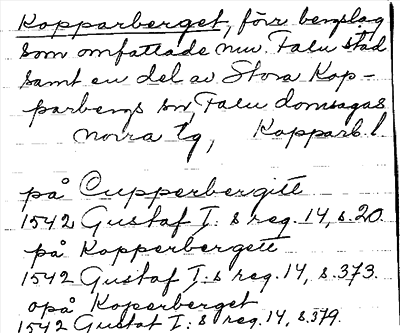 Kopparberget, förr bergslag
som omfattade nuv. Falu stad
samt en del av Stora Kop-
parbergs sn, Falu domsagas
norra tg, Kopparb. l.
på Cupperbergitt
1542 Gustaf I:s reg. 14, s. 20.
på Kopperbergett
1542 Gustaf I:s reg. 14, s. 373.
opå Koperberget
1542 Gustaf I:s reg. 14, s. 379.